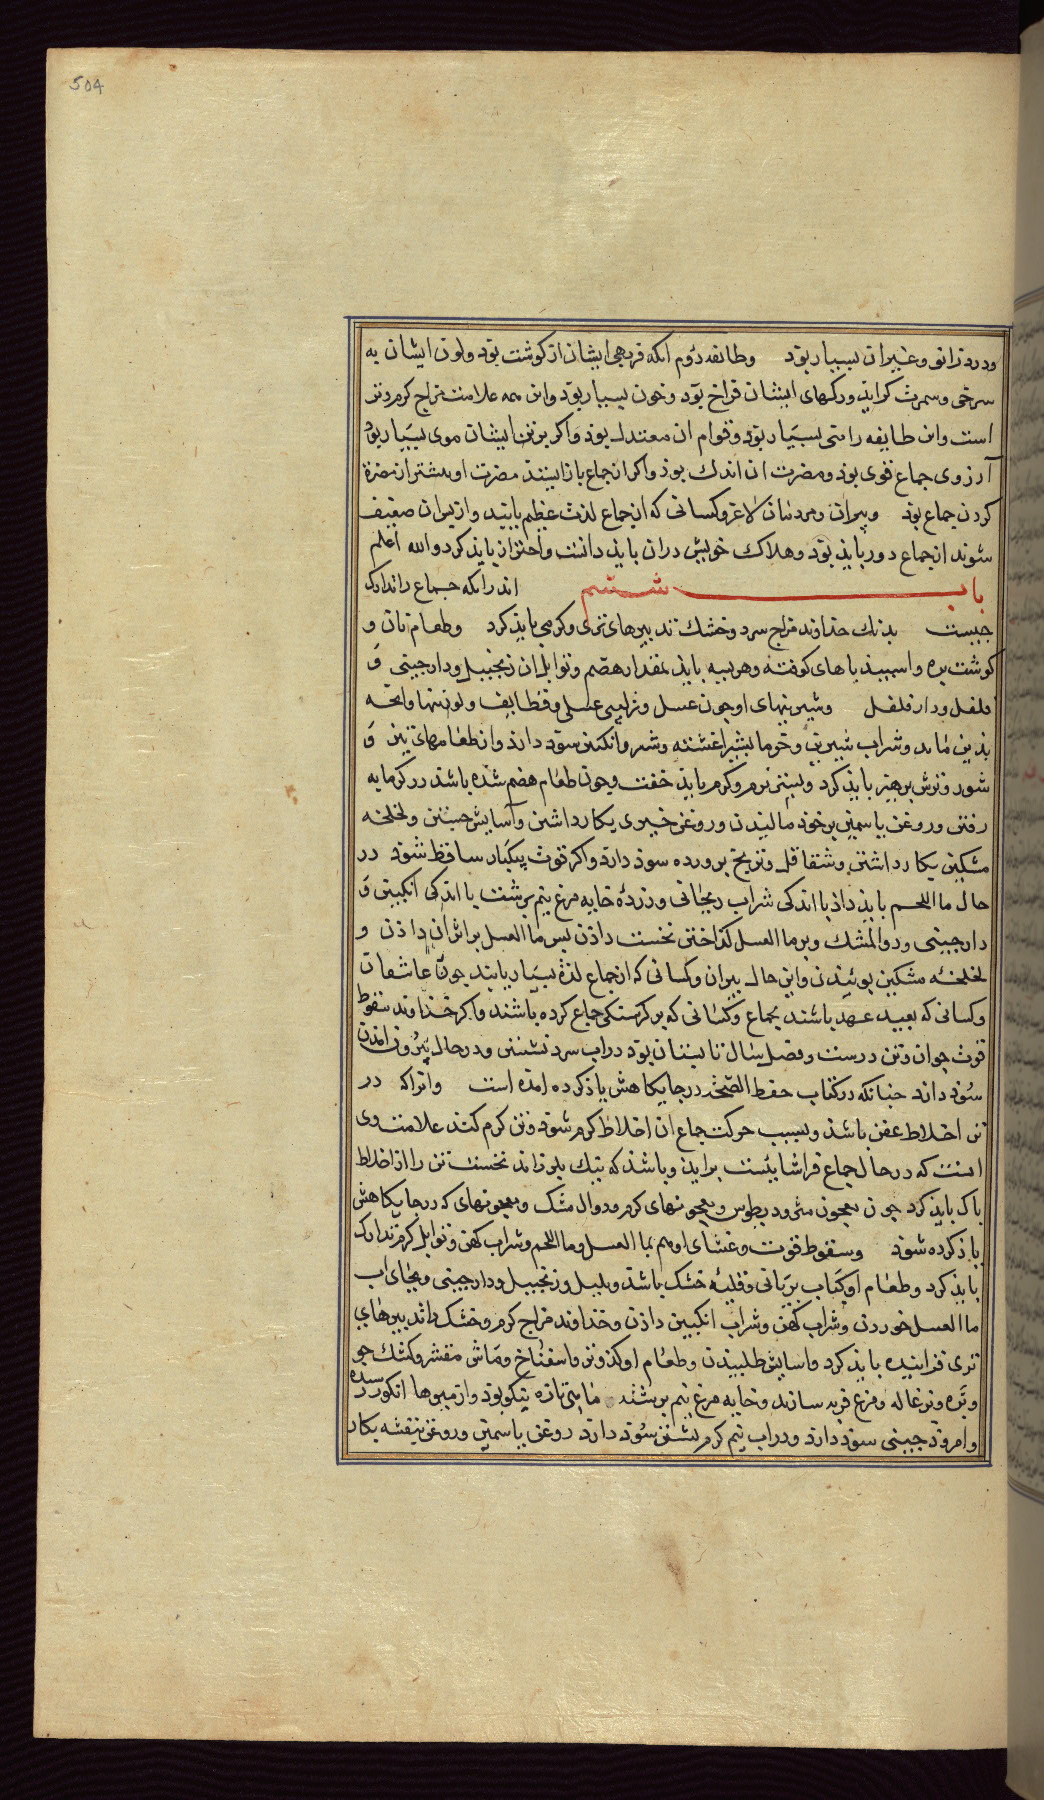 504
ودرد زانو وغیر ان بسیار بوذ وطایفه دوم آنکه فربهی ایشان از گوشت بوذ ولون ایشان به
سرخی وسمرت گراید ورگهای ایشان فراخ بوذ وخون بسیار بوذ واین همه علامت مزاج گرم وتر
است واین طایفه را منی بسیار بوذ وقوام ان معتدل بوذ واگر بر تن ایشان موی بسیار بوذ
آرزوی جماع قوی بوذ ومضرت ان اندک بوذ واگر از جماع باز ایستند مضرت او بیشتر از مضرة
کردن جماع بوذ وپیران ومردمان لاغر وکسانی که از جماع لذت عظیم یابند واز پس ان ضعیف
شوند از جماع دور بایذ بوذ وهلاک خویش در ان بایذ دانست واحتراز بایذ کرد والله اعلم
باب ششم اندر آنکه جماع را تدارک
چیست بدانک خداوند مزاج سرد وخشک تدبیرهای تری وگرمی بایذ کرد وطعام نان و
گوشت بره واسپیدباهای کوفته وهریسه بایذ بمقدار هضم وتوابل ان زنجبیل ودارچینی و
فلفل ودارفلفل وشیرینهای او چون عسل و عسلی وقطایف ولوزینها وانچه
بذین ماند وشراب شیرین وخرما بشیر اغشته وشیر وانگبین سوذ دارذ واز طعامهای تیز و
شور وترش پرهیز بایذ کرد وبستر نرم وگرم بایذ خفت وچون طعام هضم شده باشد در گرمابه
رفتن وروغن یاسمین بر خوذ مالیدن وروغن خیری بکار داشتن وآسایش جستن ولخلخه
مشکین بکار داشتن وشقاقل وترنج پرورده سوذ دارذ واگر قوت بیکبار ساقط شوذ در
حال ماء اللحم بایذ داذ با اندکی شراب ریحانی وزرده خایه مرغ نیم برشت با اندکی انگبین و
دارچینی ودواء المشک وبر ماء العسل گداختن نخست داذن پس ماء العسل بر اثر ان داذن و
لخلخه مشکین بوئیدن واین حال پیران وکسانی که از جماع لذة بسیار یابند چون عاشقان
وکسانی که بعید عهد باشند بجماع وکسانی که بر گرسنگی جماع کرده باشند واگر خذاوند سقوط
قوت جوان وتن درست وفصل سال تابستان بوذ در اب سرد نشستن ودر حال بیرون امدن
سوذ دارد چنانکه در کتاب حفظ الصحة در جایگاهش یاذ کرده امده است وانرا که در
تن اخلاط عفن باشد وبسبب حرکت جماع ان اخلاط گرم شوذ وتن گرم کند علامت وی
انست که در حال جماع فراشا پشت براید وباشذ که بتبک بلرزاند نخست تن را از اخلاط
پاک بایذ کرد چون بمعجون مثرودیطوس ومعجونهای گرم ودواء المشک ومعجونهای که در جایگاهش
یاذ کرده شوذ وسقوط قوت وغشای او هم بماء العسل وماء اللحم وشراب کهن وتوابل گرم تدارک
بایذ کرد وطعام او کباب بریانی وقلیه خشک باشد وپلپل وزنجبیل ودارچینی وبجای اب
ماء العسل خوردن وشراب کهن وشراب انگبین داذن وخذاوند مزاج گرم وخشک را تدبیرهای
تری فزاینده بایذ کرد واسایش طلبیذن وطعام او کدو وتر واسفناخ وماش مقشر وکشک جو
وبره وبزغاله ومرغ فربه سازند وخایه مرغ نیم برشت ماهی تازه نیکو بوذ واز میوها انگور رسیده
وامروذ چینی سوذ دارذ ودر اب نیم گرم نشستن سوذ دارذ روغن یاسمین وروغن بنفشه بکار